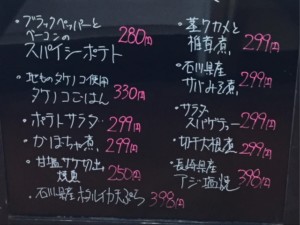 ・ブラックペッパーと
ベーコンの
スパイシーポテト 280円
・地もののタケノコ使用
タケノコごはん 330円
・ポテトサラダ 299円
・かぼちゃ煮 299円
・甘塩サケ切出
焼魚 250円
・石川県産ホタルイカ天ぷら 398円
・茎ワカメと
椎茸煮 299円
・石川県産
サバみそ煮 299円
・サラダ
スパゲティー 299円
・切干大根煮 299円
・長崎県産
アジ塩焼 398円